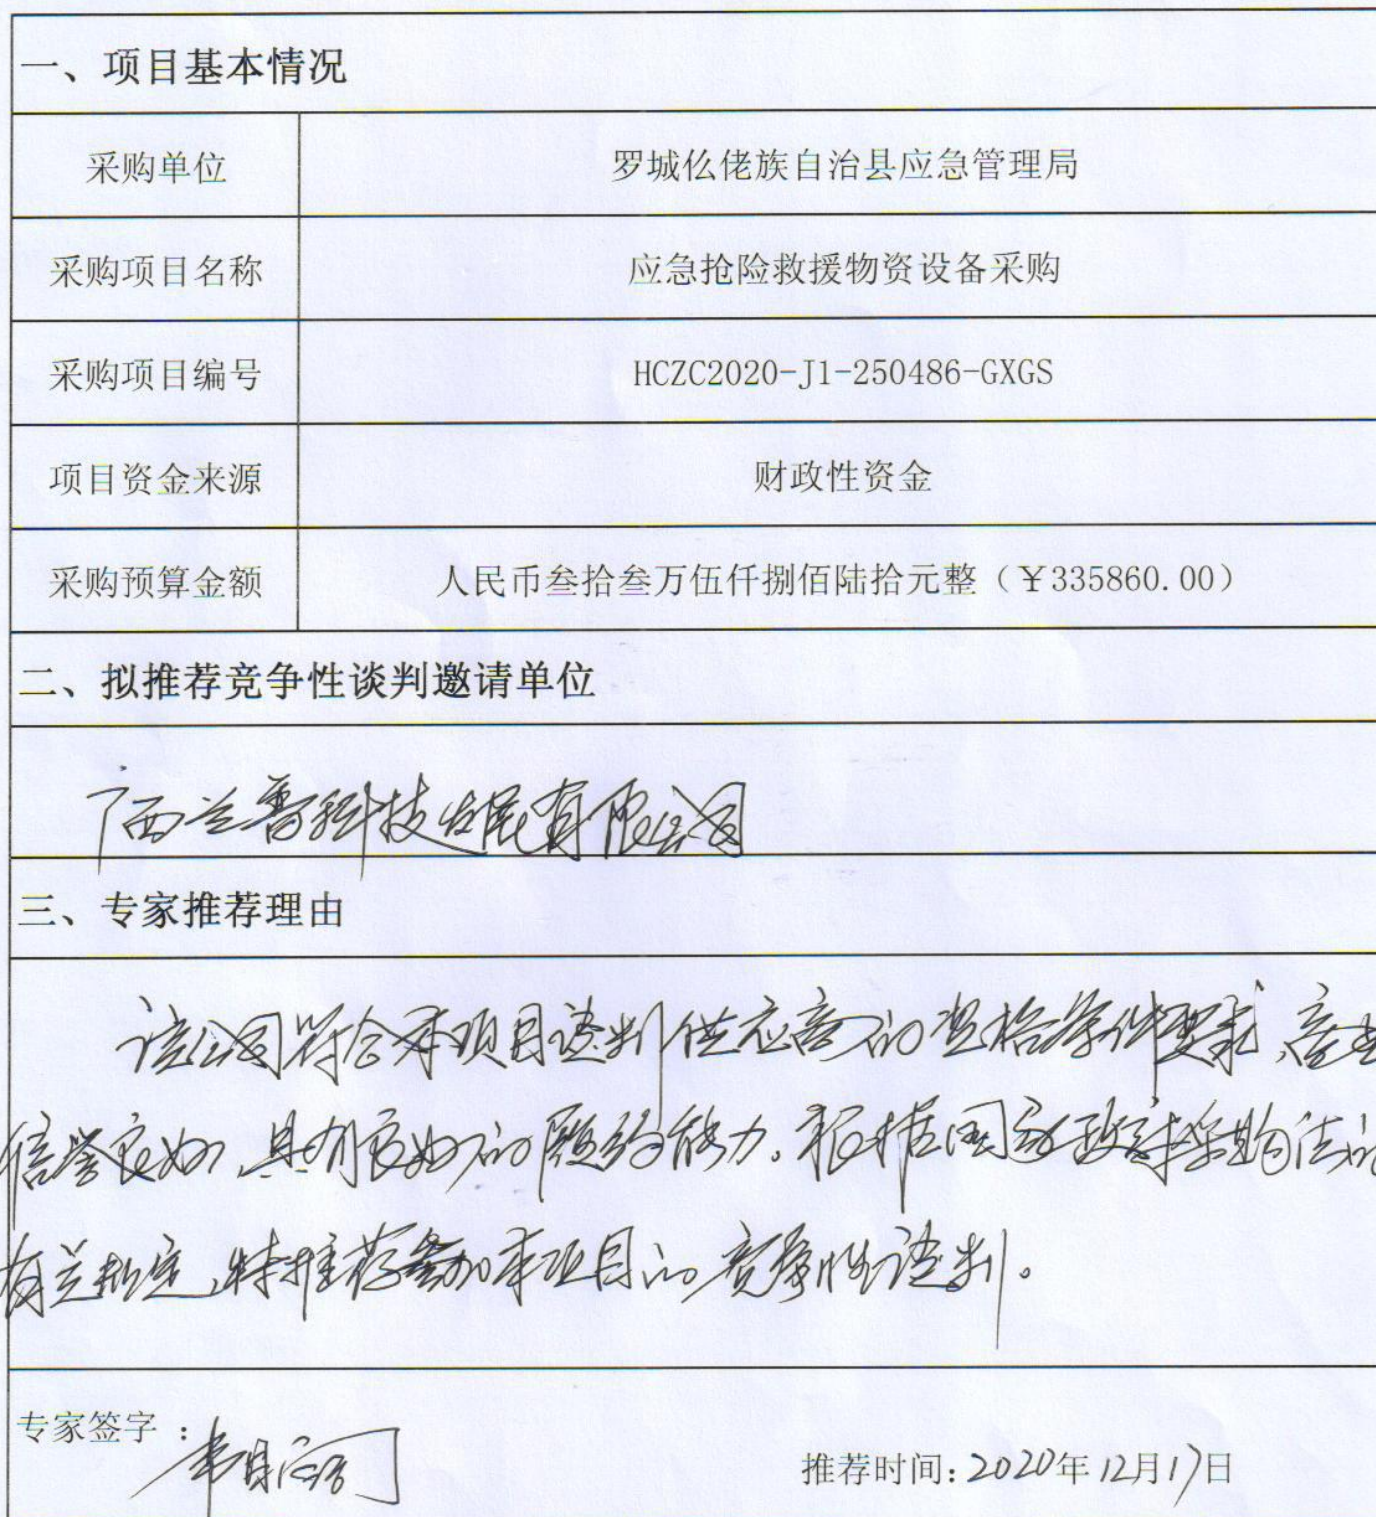 一、项目基本情况
采购单位 罗城仫佬族自治县应急管理局
采购项目名称 应急抢险救援物资设备采购
采购项目编号 HCZC2020-J1-250486-GXGS
项目资金来源 财政性资金
采购预算金额 人民币叁拾叁万伍仟捌佰陆拾元整（￥335860.00）
二、拟推荐竞争性谈判邀请单位
广西兰普科技发展有限公司
三、专家推荐理由
该公司符合本项目谈判供应商的资格条件要求、商业
信誉良好、具有良好的履约能力。根据国家政府采购法的
有关规定,特推荐参加本项目的竞争性谈判。
专家签字：
推荐时间:2020年12月17日